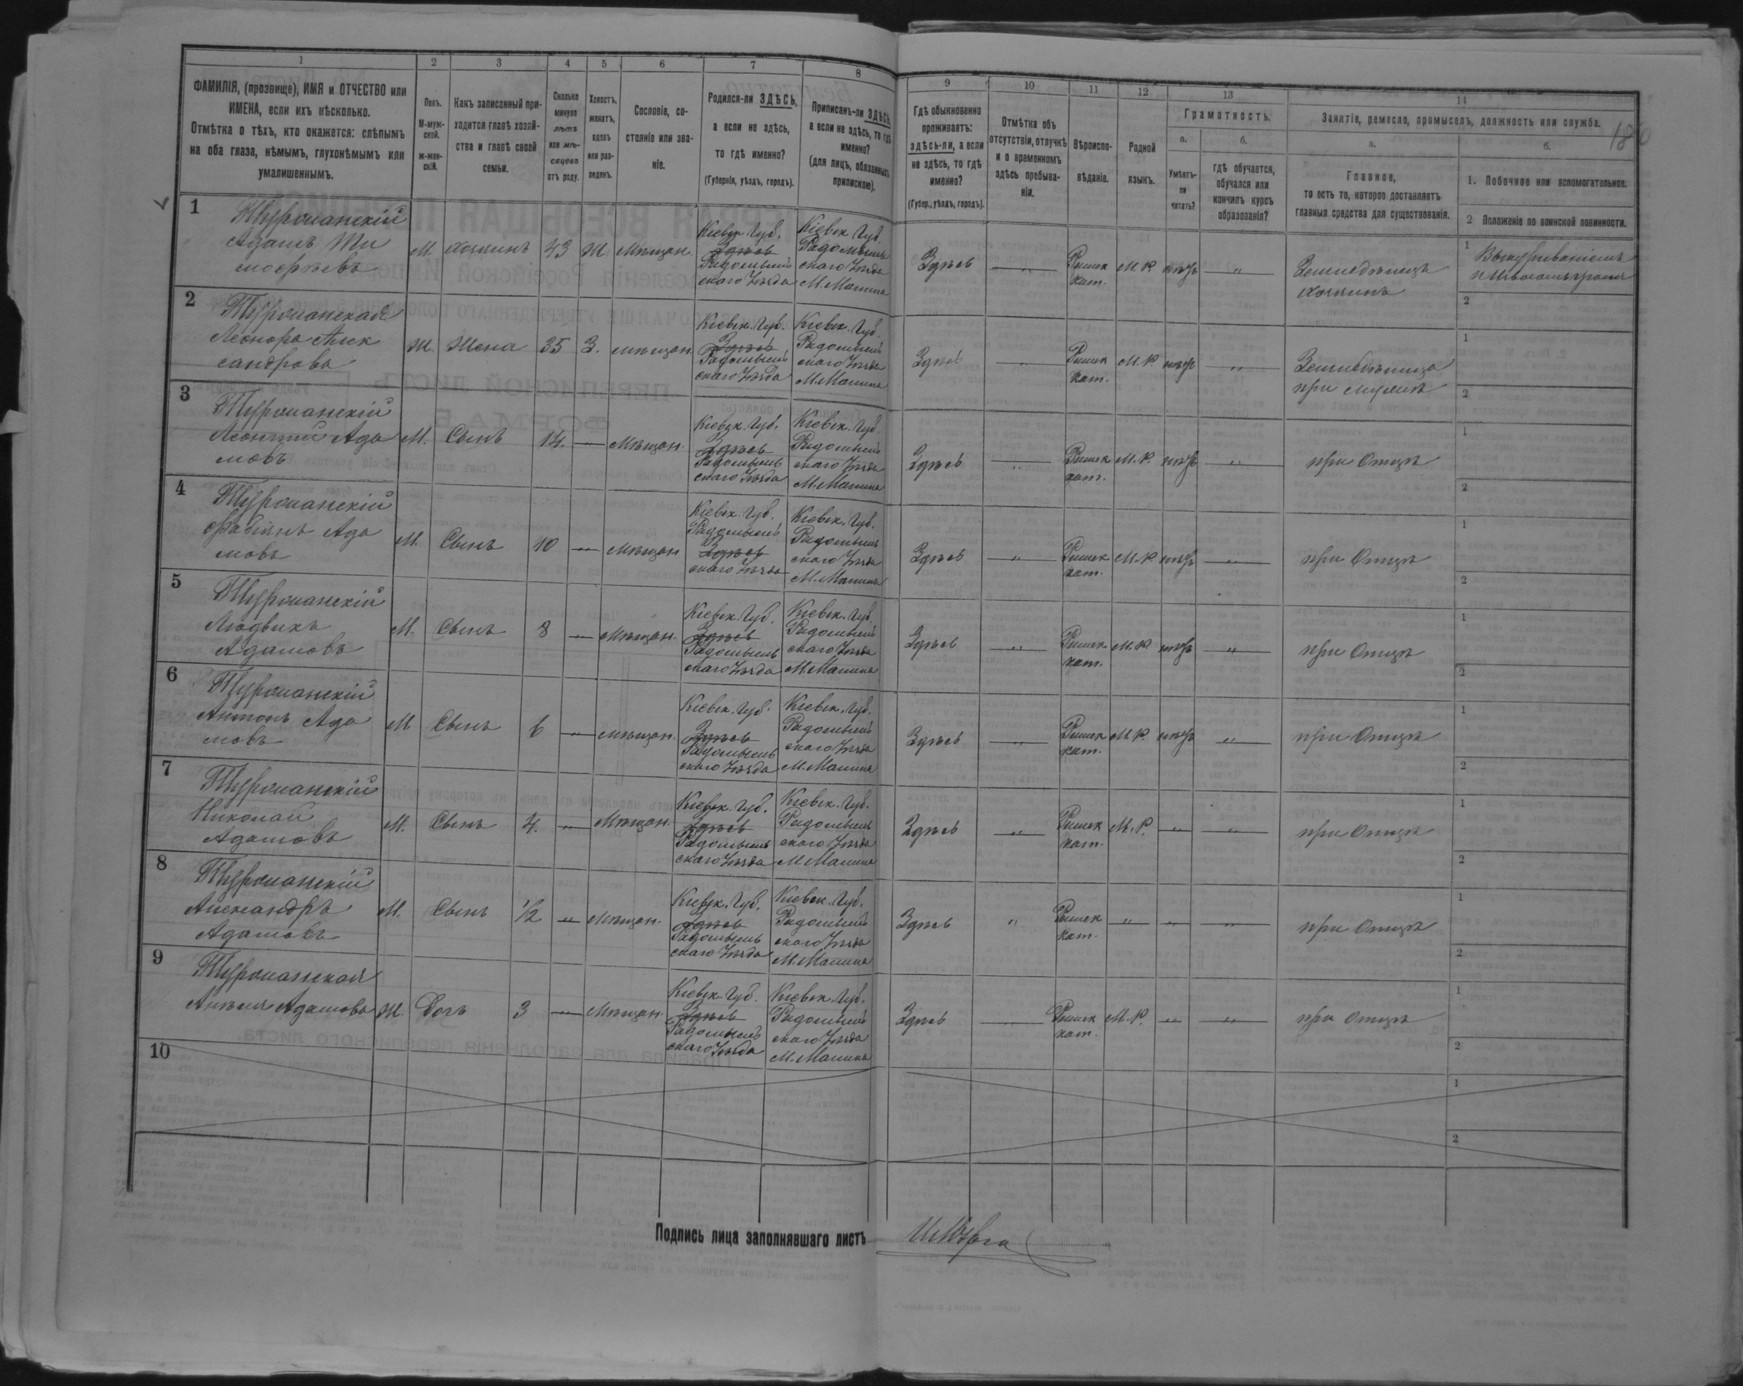 1 2 3 4 5 6 7 8 9 10 11 12 13 14
ФАМИЛІЯ, (прозвище), ИМЯ и ОТЧЕСТВО или
ИМЕНА, если ихъ нѣсколько.
Отмѣтка о тѣхъ, кто окажется: слѣпымъ
на оба глаза, нѣмымъ, глухонѣмымъ или
умалишеннымъ.
Полъ.
М-муж-
ской.
ж-жен-
скій.
Какъ записанный при-
ходится главѣ хозяй-
ства и главѣ своей
семьи.
Сколько
минуло
лѣтъ
или мѣ-
сяцевъ
отъ роду.
Холостъ,
женатъ,
вдовъ
или раз-
веденъ.
Сословіе, со-
стояніе или зва-
ніе.
Родился-ли ЗДѢСЬ,
а если не здѣсь,
то гдѣ именно?
(Губернія, уѣздъ, городъ).
Приписанъ-ли ЗДѢСЬ,
а если не здѣсь, то гдѣ
именно?
(для лицъ, обязанныхъ
припискою).
Гдѣ обыкновенно
проживаетъ:
здѣсь-ли, а если
не здѣсь, то гдѣ
именно?
(Губер., уѣздъ, городъ).
Отмѣтка объ
отсутствіи, отлучкѣ
и о временномъ
здѣсь пребыва-
ніи.
Вѣроиспо-
вѣданіе.
Родной
языкъ.
Грамотность.
а.
Умѣетъ-
ли
читать?
б.
гдѣ обучается,
обучался или
кончилъ курсъ
образованія?
Занятіе, ремесло, промыселъ, должность или служба.
180
а.
Главное,
то есть то, которое доставляетъ
главныя средства для существованія.
б.
1. Побочное или вспомогательное.
2 Положеніе по воинской повинности.
1
Адамъ Ти
мофѣевъ
М. хозяинъ 43 Ж Мѣщан.
Кіевск. Губ.
Здѣсь
Радомысль
скаго Уѣзда
Кіевск. Губ.
Радомысль
скаго Уѣзда
М. Малина
Здѣсь Римск
кат. М.Р. нѣтъ „ Земледѣлецъ
хозяинъ
1
2
2
Леонора Алек
сандрова
Ж. Жена 35 З. мѣщан.
Кіевск. Губ.
Здѣсь
Радомысль
скаго Уѣзда
Кіевск. Губ.
Радомысль
скаго Уѣзда
М. Малина
Здѣсь „ Римск
кат. М.Р. нѣтъ „ Земледѣлица
при мужѣ
1
2
3
Леонтій Ада
мовъ
М. Сынъ 14. — Мѣщан.
Кіевск. Губ.
Здѣсь
Радомысль
скаго Уѣзда
Кіевск. Губ.
Радомысль
скаго Уѣзда
М. Малина
Здѣсь „ Римск
кат. М.Р. нѣтъ „ при Отцѣ
1
2
4
Ада
мовъ
М. Сынъ 10 — Мѣщан
Кіевск. Губ.
Радомысль
Здѣсь
скаго Уѣзда
Кіевск. Губ.
Радомысль
скаго Уѣзда
М. Малина
Здѣсь „ Римск
кат. М.Р. нѣтъ „ при Отцѣ
1
2
5
Людвихъ
Адамовъ
М. Сынъ 8 — Мѣщан.
Кіевск. Губ.
Здѣсь
Радомысль
скаго Уѣзда
Кіевск. Губ.
Радомысль
скаго Уѣзда
М. Малина
Здѣсь „ Римск
кат. М.Р. нѣтъ „ при Отцѣ
1
2
6
Антонъ Ада
мовъ
М Сынъ 6 — мѣщан.
Кіевск. Губ.
Здѣсь
Радомысль
скаго Уѣзда
Кіевск. Губ.
Радомысль
скаго Уѣзда
М. Малина
Здѣсь „ Римск
кат. М.Р. нѣтъ „ при Отцѣ
1
2
7
Николай
Адамовъ
М. Сынъ 4. — Мѣщан.
Кіевск. Губ.
Здѣсь
Радомысль
скаго Уѣзда
Кіевск. Губ.
Радомысль
скаго Уѣзда
М. Малина
Здѣсь „ Римск
кат. М.Р. „ „ при Отцѣ
1
2
8
Александръ
Адамовъ
М. Сынъ 1/2 — Мѣщан.
Кіевск. Губ.
Здѣсь
Радомысль
скаго Уѣзда
Кіевск. Губ.
Радомысль
скаго Уѣзда
М. Малина
Здѣсь „ Римск
кат. „ „ „ при Отцѣ
1
2
9
Адамова Ж. Дочь 3 — Мѣщан.
Кіевск. Губ.
Здѣсь
Радомысль
скаго Уѣзда
Кіевск. Губ.
Радомысль
скаго Уѣзда
М. Малина
Здѣсь Римск
кат. М.Р. „ „ при Отцѣ
1
2
10
1
2
Подпись лица заполнявшаго листъ